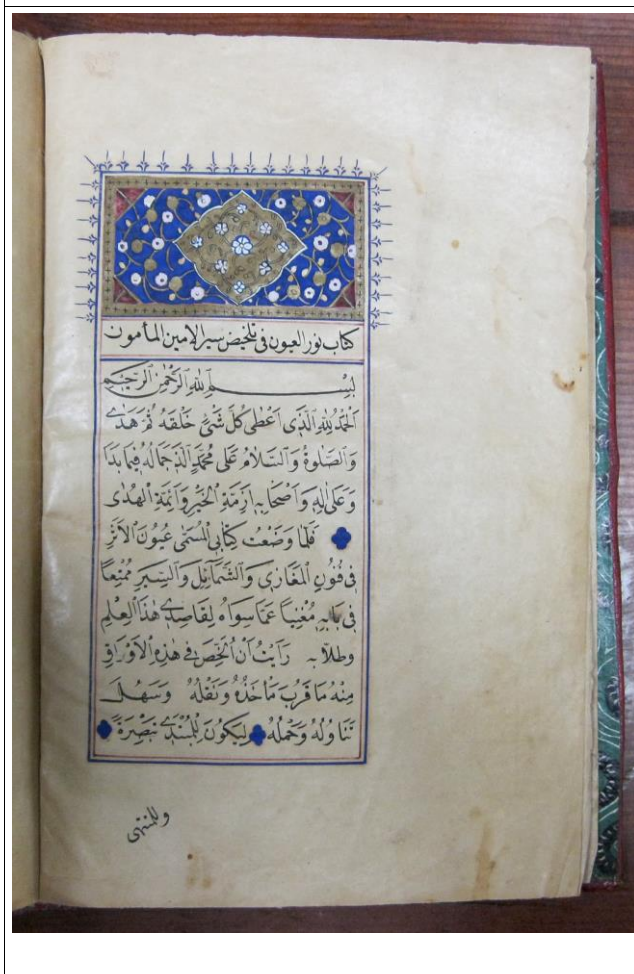 كتاب نور العيون في تلخيص سير الامين المأمون
بِسْمِ اللهِ الرَّحْمٰنِ الرَّحِيمِ
اَلْحَمْدُ لِلّٰهِ الَّذِى اَعْطٰى كُلَّ شَىْءٍ خَلْقَهُ ثُمَّ هَدٰى
وَالصَّلٰوةُ وَالسَّلَامُ عَلٰى مُحَمَّدٍ الَّذِ جَمَالُهُ فِيمَا بَدَا
وَعَلٰى اٰلِهِ وَاَصْحَابِهِ اَزِمَّةِ الْخَيْرِ وَاَئِمَّةِ الْهُدٰى
فَلَمَّا وَضَعْتُ كِتَابِى الْمُسَمّٰى عُيُونَ الْاَثَرِ
فِى فُنُونِ الْمَغَازِى وَالشَّمَائِلِ وَالسِّيَرِ مُمْتِعًا
فِى بَابِهِ مُغْنِيًا عَمَّا سِوَاهُ لِقَاصِدِى هٰذَا الْعِلْمِ
وطلابه رَاَيْتُ اَنْ اُلَخِّصَ فِى هٰذِهِ الْاَوْرَاقِ
مِنْهُ مَا قَرُبَ مَأْخَذُهُ وَنَقْلُهُ وَسَهُلَ
تَنَاوُلُهُ وَحَمْلُهُ وَلِيَكُونَ لِلْمُبْتَدِى تَبْصِرَةً
وللمنتهى